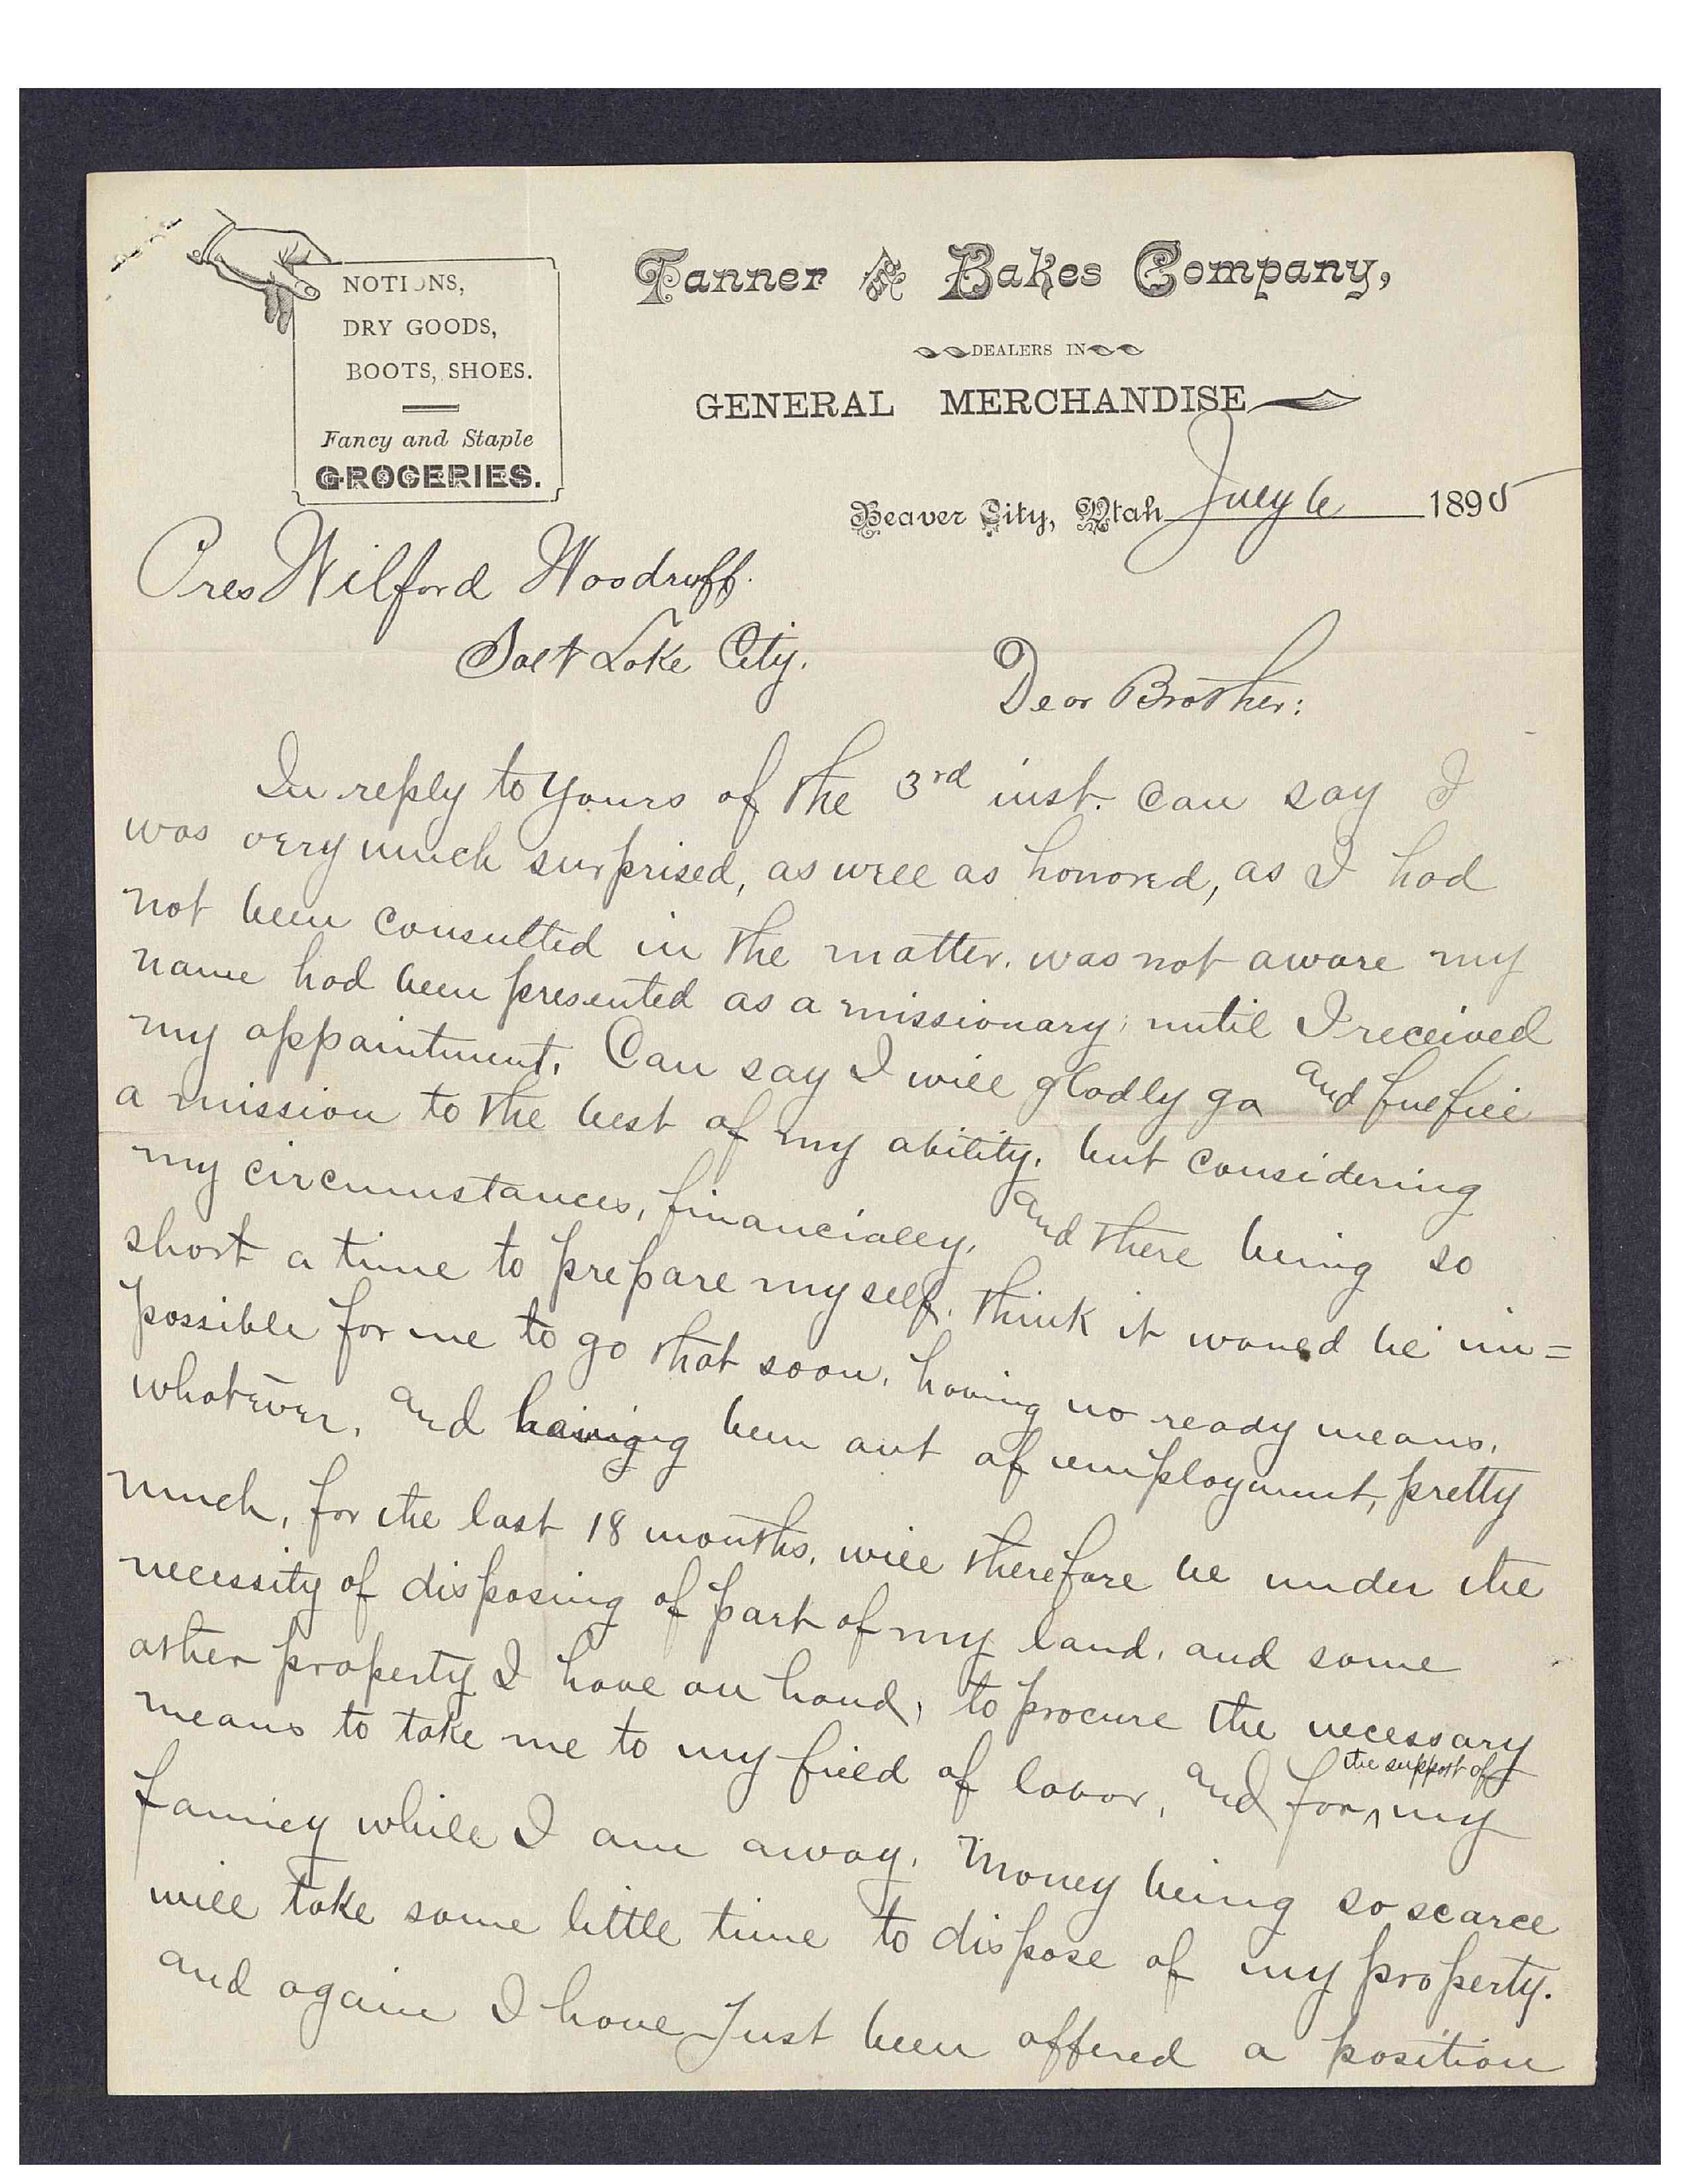 NOTIONS,
DRY GOODS,
BOOTS, SHOES.
Fancy and Staple
GROCERIES.
Tanner & Bakes Company,
DEALERS IN
GENERAL MERCHANDISE
Beaver City, Utah July 6 1895
Pres Wilford Woodruff.
Salt Lake City.
Dear Brother:
In reply to yours of the 3rd inst. can say I
was very much surprised, as well as honored, as I had
not been consulted in the matter. was not aware my
name had been presented as a missionary; until I received
my appointment. Can say I will gladly go and fulfill
a mission to the best of my ability, but considering
my circumstances, financially, and there being so
short a time to prepare myself. think it would be im=
possible for me to go that soon, having no ready means,
whatever, and having been out of employment, pretty
much, for the last 18 months, will therefore be under the
necessity of disposing of part of my land, and some
other property I have on hand, to procure the necessary
means to take me to my field of labor, and for ^the support of^ my
family while I am away. Money being so scarce
will take some little time to dispose of my property.
and again I have Just been offered a position